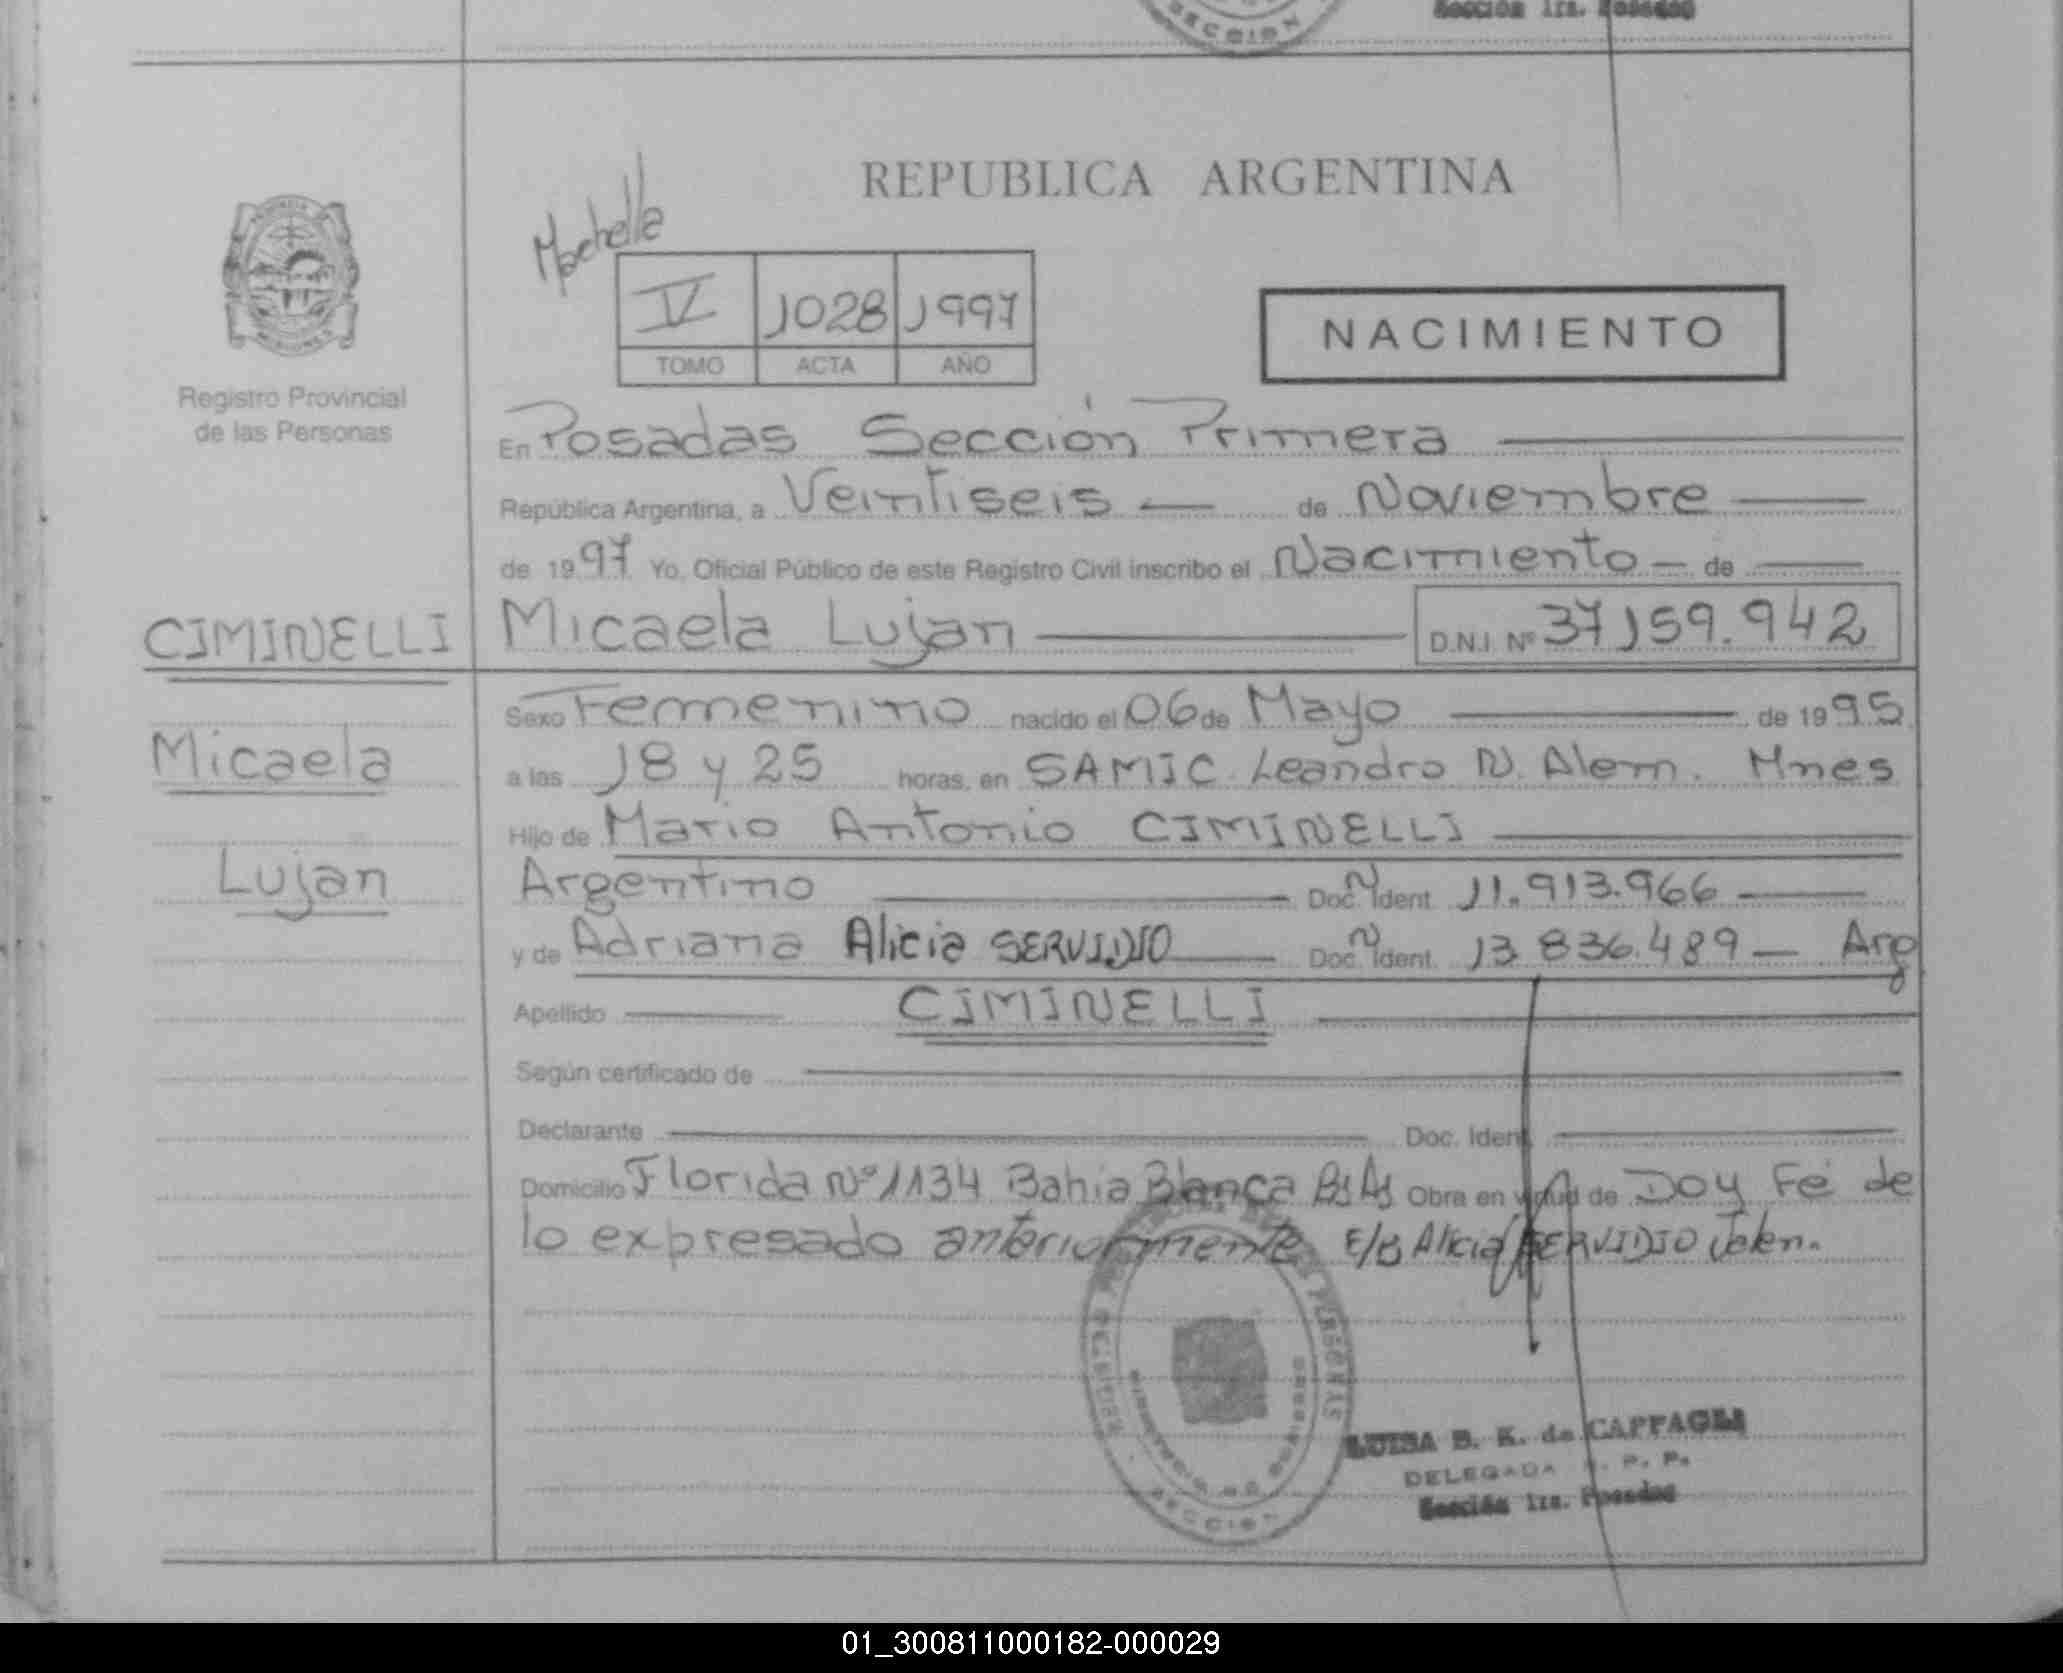 Sección 1ra. Posadas
SECCION
REPUBLICA ARGENTINA
PROVINCIA
MISIONES
V 1028 1997
TOMO ACTA AÑO
NACIMIENTO
Registro Provincial
de las Personas
En Posadas Sección Primera
República Argentina, a Veintiseis de Noviembre
de 1997 Yo, Oficial Público de este Registro Civil inscribo el Nacimiento de
CIMINELLI
Micaela Lujan D.N.I. Nº 37159.942
Micaela
Lujan
Sexo Femenino nacido el 06 de Mayo de 1995
a las 18 y 25 horas, en SAMIC. Leandro N. Alem. Mnes
Hijo de Mario Antonio CIMINELLI
Argentino Doc. N Ident. 11.913.966
y de Adriana Alicia SERVIDIO Doc. N Ident. 13.836.489 Arg
Apellido CIMINELLI
Según certificado de
Declarante Doc. Ident.
Domicilio Florida Nº 1134 Bahia Blanca Bs As Obra en virtud de Doy Fé de
lo expresado anteriormente E/L Alicia SERVIDIO Valen.
LUISA B. K. de CAFFAGNI
DELEGADA R. P. P.
Sección 1ra. Posadas
01_300811000182-000029